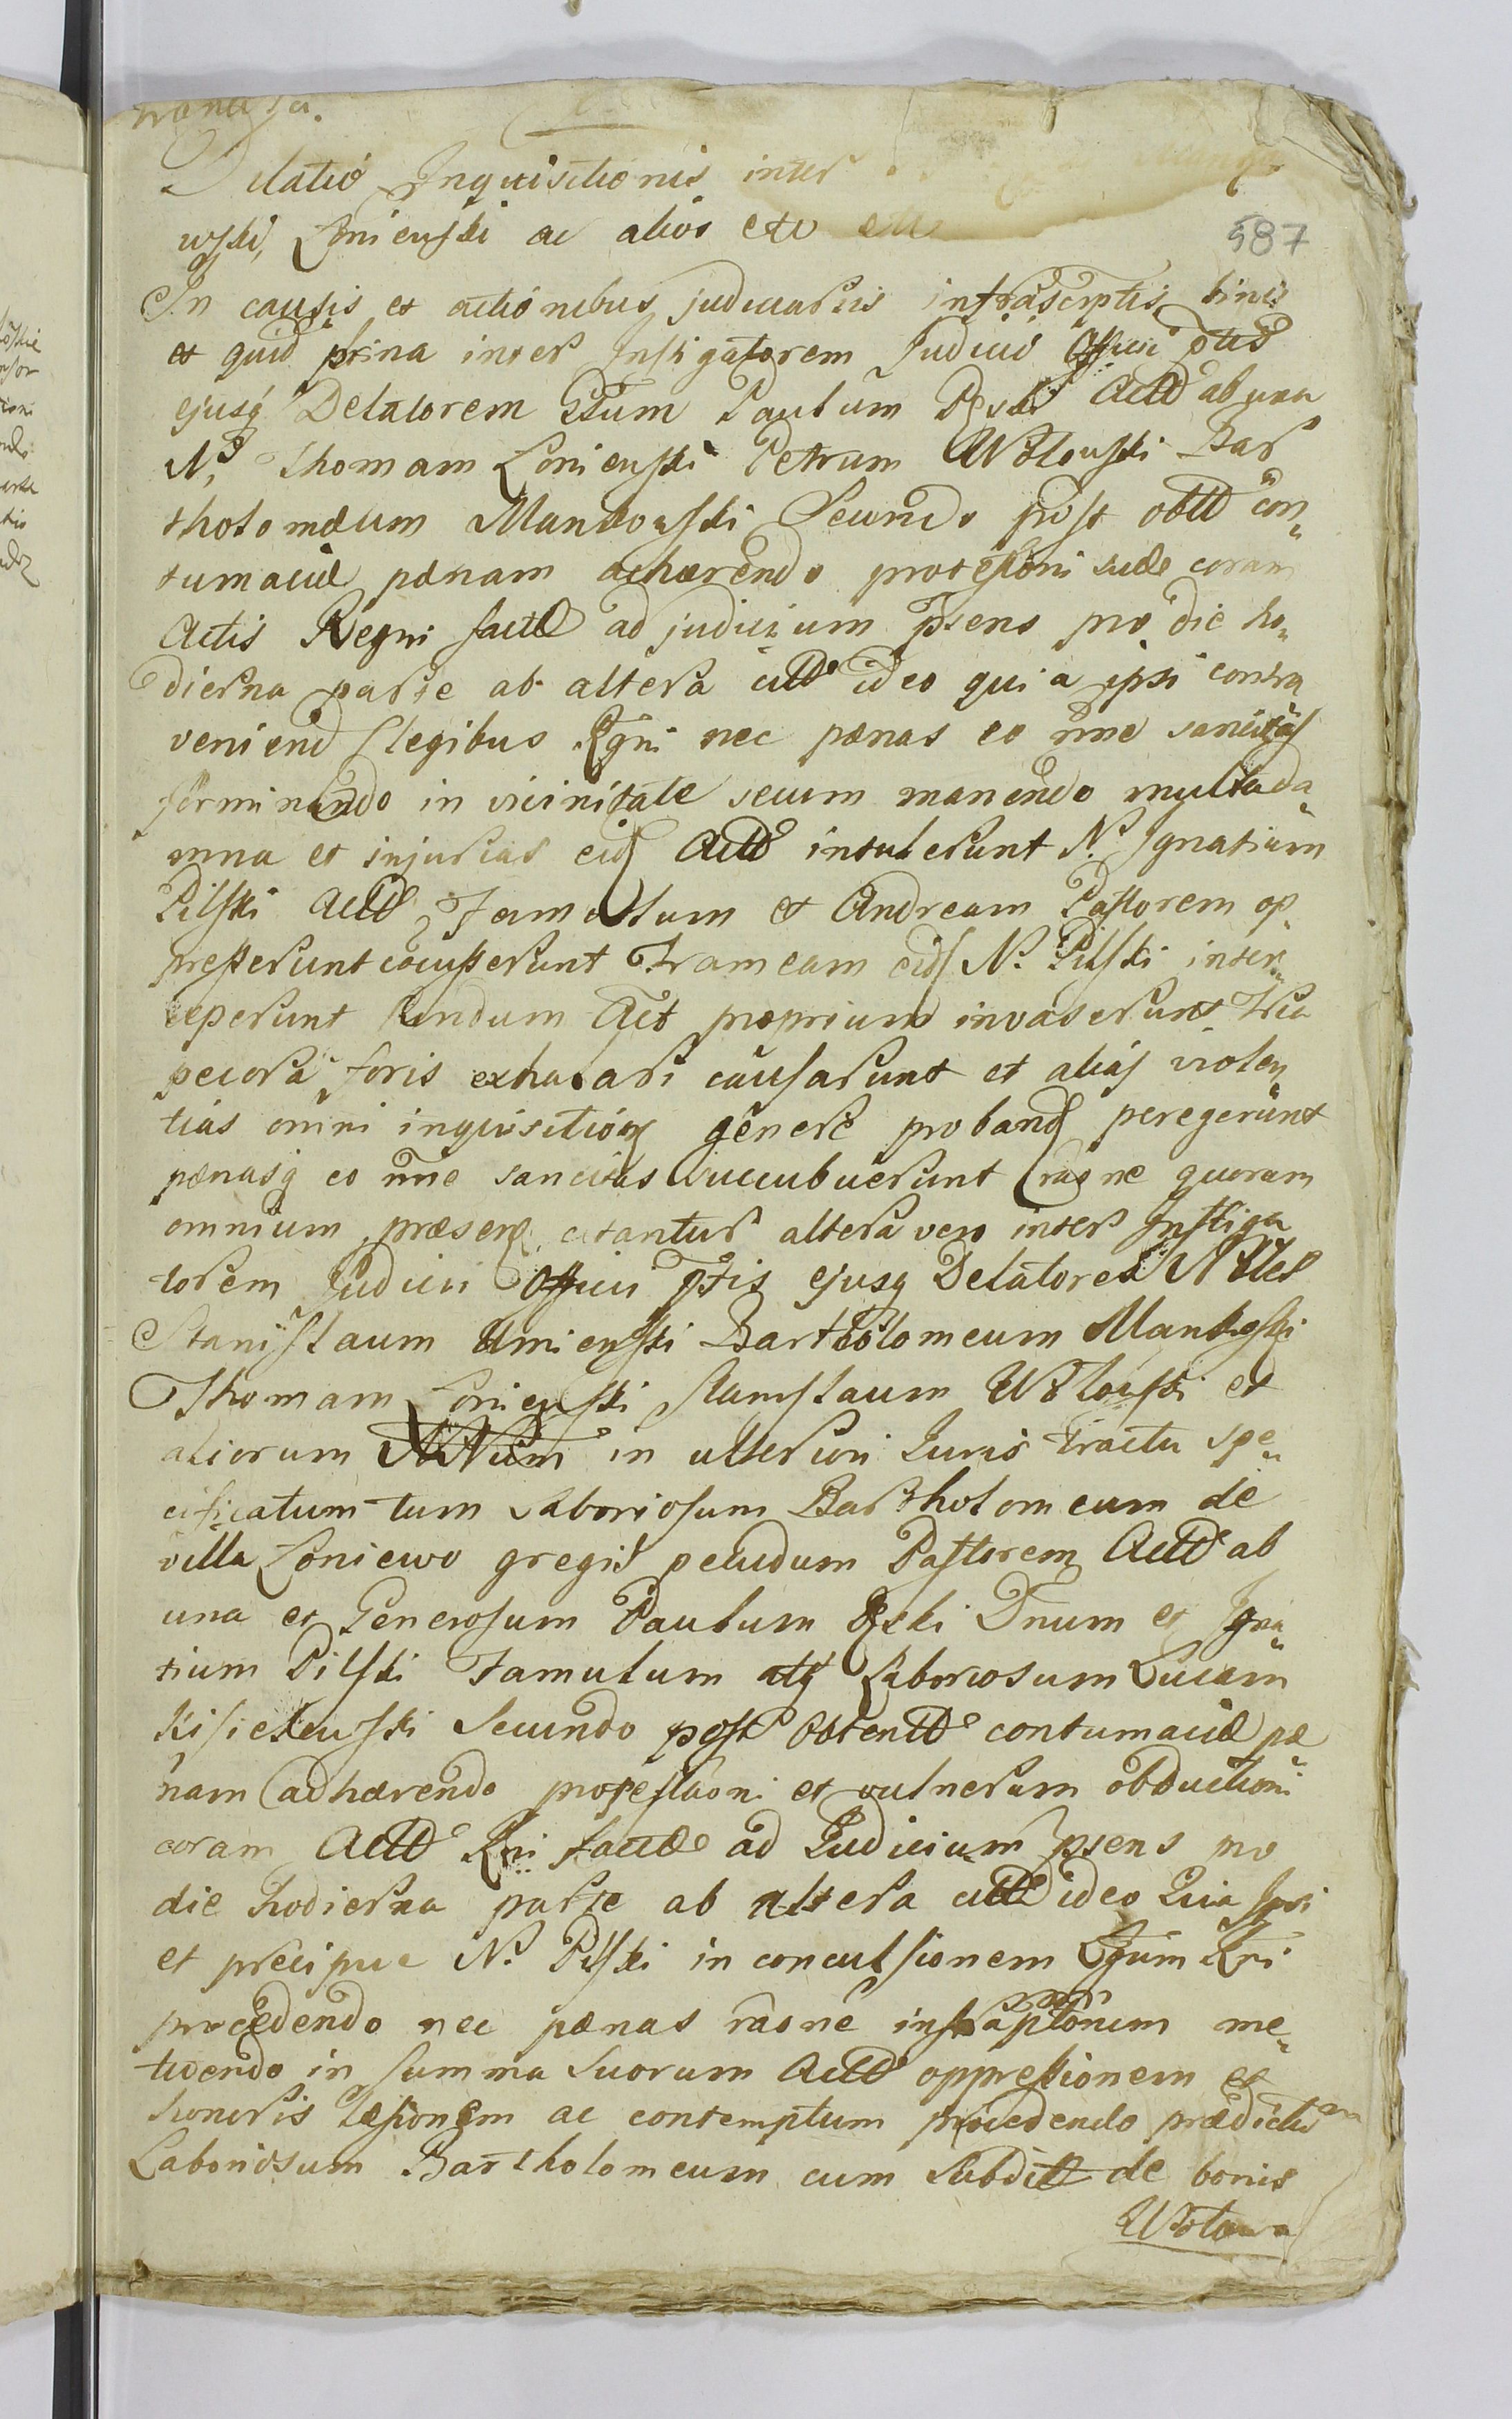 Dilatio Inquisitionis inter
wski, Łoniewski ac alios etc etc
587
In causis et actionibus judiciariis infrascriptis binis
et quid prima inter Instigatorem Judicii Officii ptis
ejusq Delatorem Gsum Paulum Act ab una
N. Thomam Łoniewski Petrum Wołowski Bar
tholomæum Mankowski Secundo post obtt con„
tumaciæ pænam adhærendo protesõni suæ coram
Actis Regni factæ ad judicium psens pro die ho„
dierna parte ab altera citt ideo quia ipsi contra
veniend legibus Rgni nec pænas eo nne sancitas
forminando in vicinitate secum manendo multa da„
mna et injurias eid Actt intulerunt N. Ignatium
Pilski Actt Famulum et Andream Pastorem op„
presserunt concusserunt Frameam eid N. Pilski inter„
ceperunt fundum Act proprium invaserunt tria
pecora foris causarunt et alias violen„
tias omni inquisitiõn genere proband peregerunt
pænasq eo nne sancitas succubuerunt raõne quorum
omnium præsen citantur altera vero inter Instiga
torem Judicii Officii ptis ejusq Delatores Nbles
Stanislaum Umienski Bartholomeum Mankoski
Thomam Łoniewski Stanislaum Wołowski et
aliorum in ulteriori Juris tractu spe„
cificatum tum Laboriosum Bartholomeum de
villa Łoniewo gregis pecudum Pastorem Actt ab
una et Generosum Paulum Dnum et Igna„
tium Pilski Famulum atq Laboriosum Lucam
Kisielewski Secundo post obtentt contumaciæ pæ
nam adhærendo protestaõni et vulnerum obductioni
coram Actt Rni factæ ad Judicium psens pro
die hodierna parte ab altera citt ideo Quia Ipsi
et precipue N. Pilski in concussionem Lgum Rni
procedendo nec pænas raõne infraptõrum me„
tuendo in summa suorum Actt oppressionem et
honoris læsionem ac contemptum procedendo prædictum
Laboriosum Bartholomeum cum subditt de bonis
Wołowa